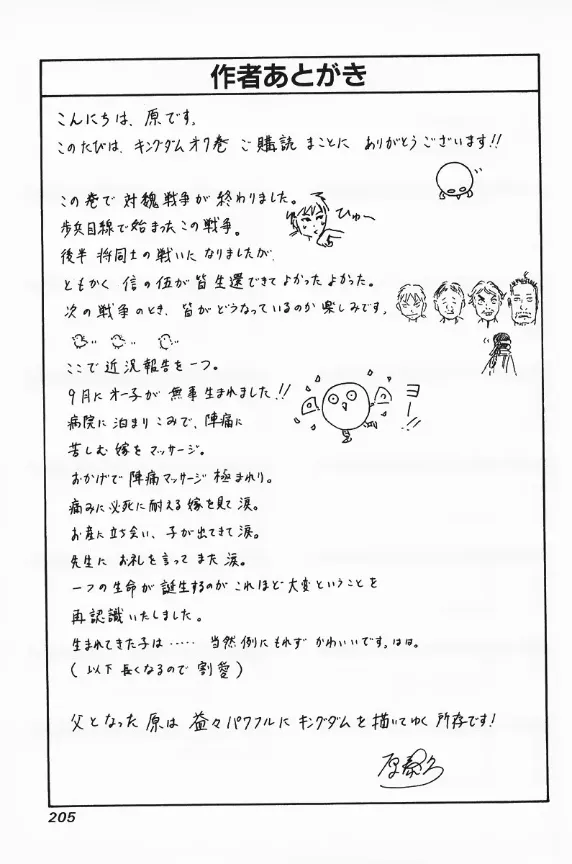 作者あとがき
こんにちは、原です。
このたびは、キングダムオ7巻 ご購読 まことに ありがとうございます!!
この巻で 対魏戦争が 終わりました。
歩兵目線で始まったこの戦争。
ひゅ〜
後半 将同士の戦いに なりましたが、
ともかく 信の伍が皆生還できてよかったよかった。
次の戦争のとき、皆がどうなっているのか楽しみです。
ここで近況報告を一つ。
9月にオ一子が 無事生まれました!!
ヨーー!!
病院に泊まりこみで、陣痛に
苦しむ嫁をマッサージ。
おかげで陣痛マッサージ極まれり。
痛みに必死に耐える嫁を見て涙。
お産に立ち会い、子が出てきて涙。
先生に お礼を言って また 涙。
一つの生命が誕生するのが これほど大変ということを
再認識いたしました。
生まれてきた子は…… 当然例にもれず かわいいです。はは。
(以下長くなるので 割愛)
父となった 原は 益々パワフルに キングダムを描いてゆく 所存です!
原泰久
205